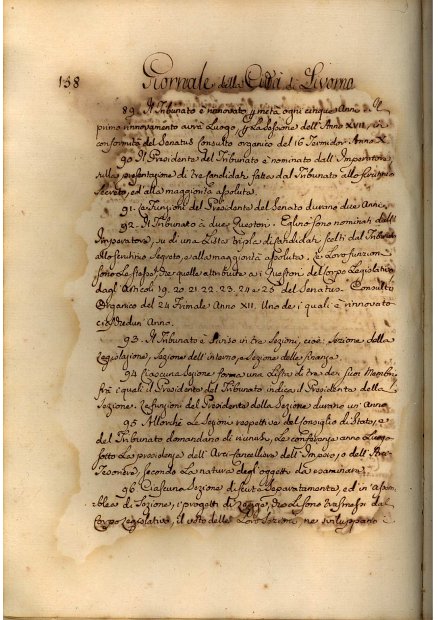 138 Giornale della Città di Livorno
89. Il Tribunato è rinnovato p metà ogni cinque Anni. Il
primo rinnovamento avrà Luogo p La Sessione dell'Anno XVII, in
conformità del Senatus Consulto organico del 16 Termidor Anno X.
90. Il Presidente del Tribunato è nominato dall'Imperatore,
sulla presentazione di tre Candidati fatta dal Tribunato allo scrutinio
secreto, ed alla maggiorità assoluta.
91. Le Funzioni del Presidente del Senato durano due Anni.
92. Il Tribunato à due Questori. Eglino sono nominati dall'
Imperatore, su di una Lista tripla di Candidati scelti dal Tribunato
allo scrutinio Segreto, e alla maggiorità assoluta. Le Loro funzioni
sono Le stesse, che quelle attribuite a i Questori del Corpo Legislativo
dagli Articoli 19. 20. 21. 22. 23. 24 e 25. del Senatus Consulto
Organico del 24 Frimale Anno XII. Uno de i quali è rinnovato
ciascun Anno.
93. Il Tribunato è Diviso in tre Sezioni, cioè: Sezione della
Legislazione, Sezione dell'interno, e Sezione delle finanze.
94. Ciascuna Sezione forma una Lista di tre dei suoi Membri
frà i quali il Presidente del Tribunato indica il Presidente della
Sezione. Le funzioni del Presidente della Sezione durano un'Anno.
95. Allorchè Le Sezioni respettive del Consiglio di Stato, e
del Tribunato domandano di riunirsi, Le conferenze anno Luogo
sotto La presidenza dell'Arci-Cancelliere dell'Imperio, o dell'Arci-
Tesoriere, secondo La natura degli oggetti da esaminare.
96. Ciascuna Sezione discute Separatamente, ed in assem-
blea di Sezione, i progetti di Legge, che Li sono trasmessi dal
Corpo Legislativo, il voto delle Loro Sezioni, ne sviluppano i